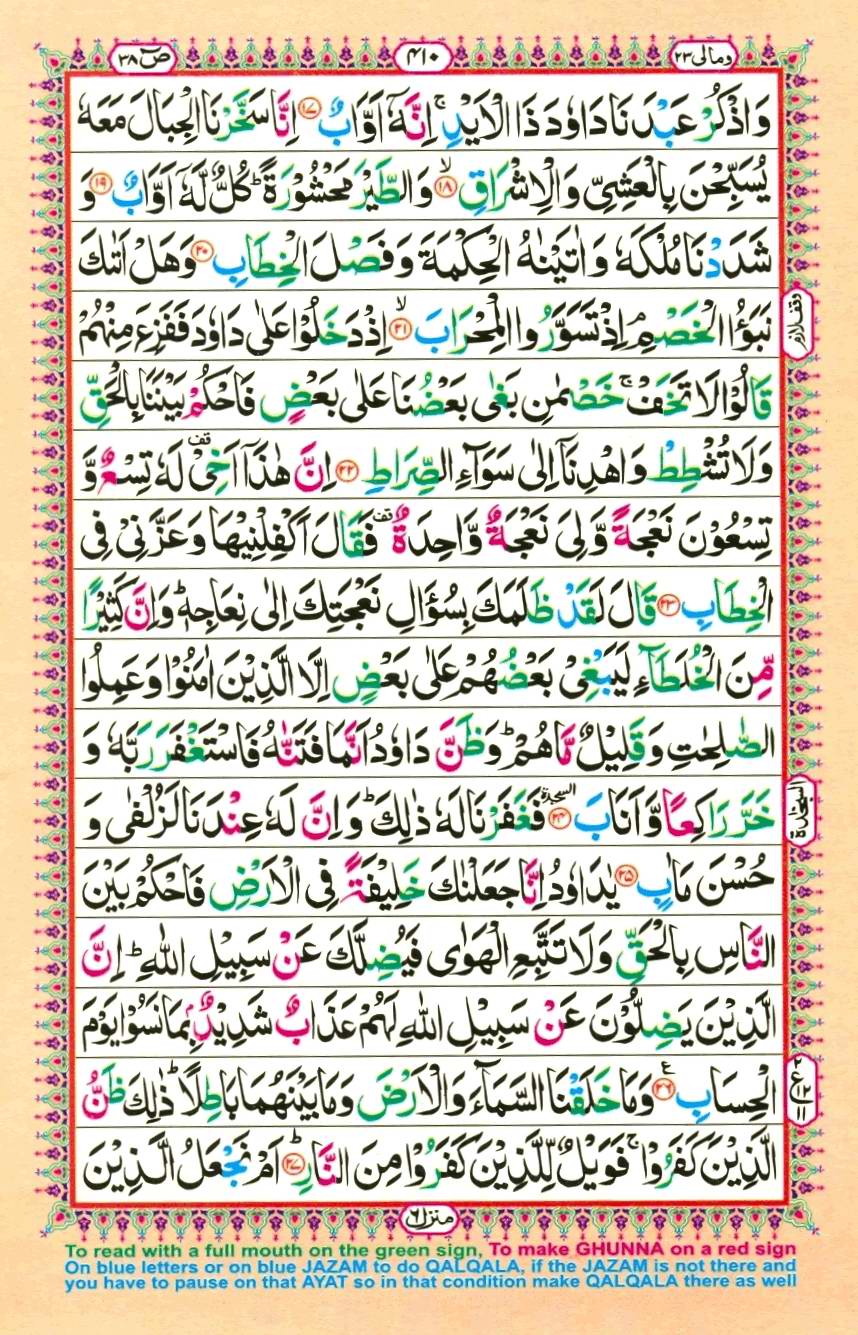 ومالی ۲۳
۴۱۰
صٓ ۳۸
وَاذْكُرْ عَبْدَنَا دَاوٗدَ ذَا الْاَیْدِ ۚ اِنَّهٗۤ اَوَّابٌ ۱۷ اِنَّا سَخَّرْنَا الْجِبَالَ مَعَهٗ
یُسَبِّحْنَ بِالْعَشِیِّ وَالْاِشْرَاقِ ۙ ۱۸ وَالطَّیْرَ مَحْشُوْرَةً ؕ كُلٌّ لَّهٗۤ اَوَّابٌ ۱۹ وَ
شَدَدْنَا مُلْكَهٗ وَاٰتَیْنٰهُ الْحِكْمَةَ وَفَصْلَ الْخِطَابِ ۲۰ وَهَلْ اَتٰىكَ
نَبَؤُا الْخَصْمِ ۘ اِذْ تَسَوَّرُوا الْمِحْرَابَ ۙ ۲۱ اِذْ دَخَلُوْا عَلٰی دَاوٗدَ فَفَزِعَ مِنْهُمْ
وقف لازم
قَالُوْا لَا تَخَفْ ۚ خَصْمٰنِ بَغٰی بَعْضُنَا عَلٰی بَعْضٍ فَاحْكُمْ بَیْنَنَا بِالْحَقِّ
وَلَا تُشْطِطْ وَاهْدِنَاۤ اِلٰی سَوَآءِ الصِّرَاطِ ۲۲ اِنَّ هٰذَاۤ اَخِیْ قف لَهٗ تِسْعٌ وَّ
تِسْعُوْنَ نَعْجَةً وَّلِیَ نَعْجَةٌ وَّاحِدَةٌ قف فَقَالَ اَكْفِلْنِیْهَا وَعَزَّنِیْ فِی
الْخِطَابِ ۲۳ قَالَ لَقَدْ ظَلَمَكَ بِسُؤَالِ نَعْجَتِكَ اِلٰی نِعَاجِهٖ ؕ وَاِنَّ كَثِیْرًا
مِّنَ الْخُلَطَآءِ لَیَبْغِیْ بَعْضُهُمْ عَلٰی بَعْضٍ اِلَّا الَّذِیْنَ اٰمَنُوْا وَعَمِلُوا
الصّٰلِحٰتِ وَقَلِیْلٌ مَّا هُمْ ؕ وَظَنَّ دَاوٗدُ اَنَّمَا فَتَنّٰهُ فَاسْتَغْفَرَ رَبَّهٗ وَ
خَرَّ رَاكِعًا وَّاَنَابَ السجدة ۲۴ فَغَفَرْنَا لَهٗ ذٰلِكَ ؕ وَاِنَّ لَهٗ عِنْدَنَا لَزُلْفٰی وَ
السجدة
حُسْنَ مَاٰبٍ ۲۵ یٰدَاوٗدُ اِنَّا جَعَلْنٰكَ خَلِیْفَةً فِی الْاَرْضِ فَاحْكُمْ بَیْنَ
النَّاسِ بِالْحَقِّ وَلَا تَتَّبِعِ الْهَوٰی فَیُضِلَّكَ عَنْ سَبِیْلِ اللّٰهِ ؕ اِنَّ
الَّذِیْنَ یَضِلُّوْنَ عَنْ سَبِیْلِ اللّٰهِ لَهُمْ عَذَابٌ شَدِیْدٌۢ بِمَا نَسُوْا یَوْمَ
الْحِسَابِ ع ۲۶ وَمَا خَلَقْنَا السَّمَآءَ وَالْاَرْضَ وَمَا بَیْنَهُمَا بَاطِلًا ؕ ذٰلِكَ ظَنُّ
۲ ع ۱۲ ۱۱
الَّذِیْنَ كَفَرُوْا ۚ فَوَیْلٌ لِّلَّذِیْنَ كَفَرُوْا مِنَ النَّارِ ؕ ۲۷ اَمْ نَجْعَلُ الَّذِیْنَ
منزل ۶
To read with a full mouth on the green sign, To make GHUNNA on a red sign
On blue letters or on blue JAZAM to do QALQALA, if the JAZAM is not there and
you have to pause on that AYAT so in that condition make QALQALA there as well